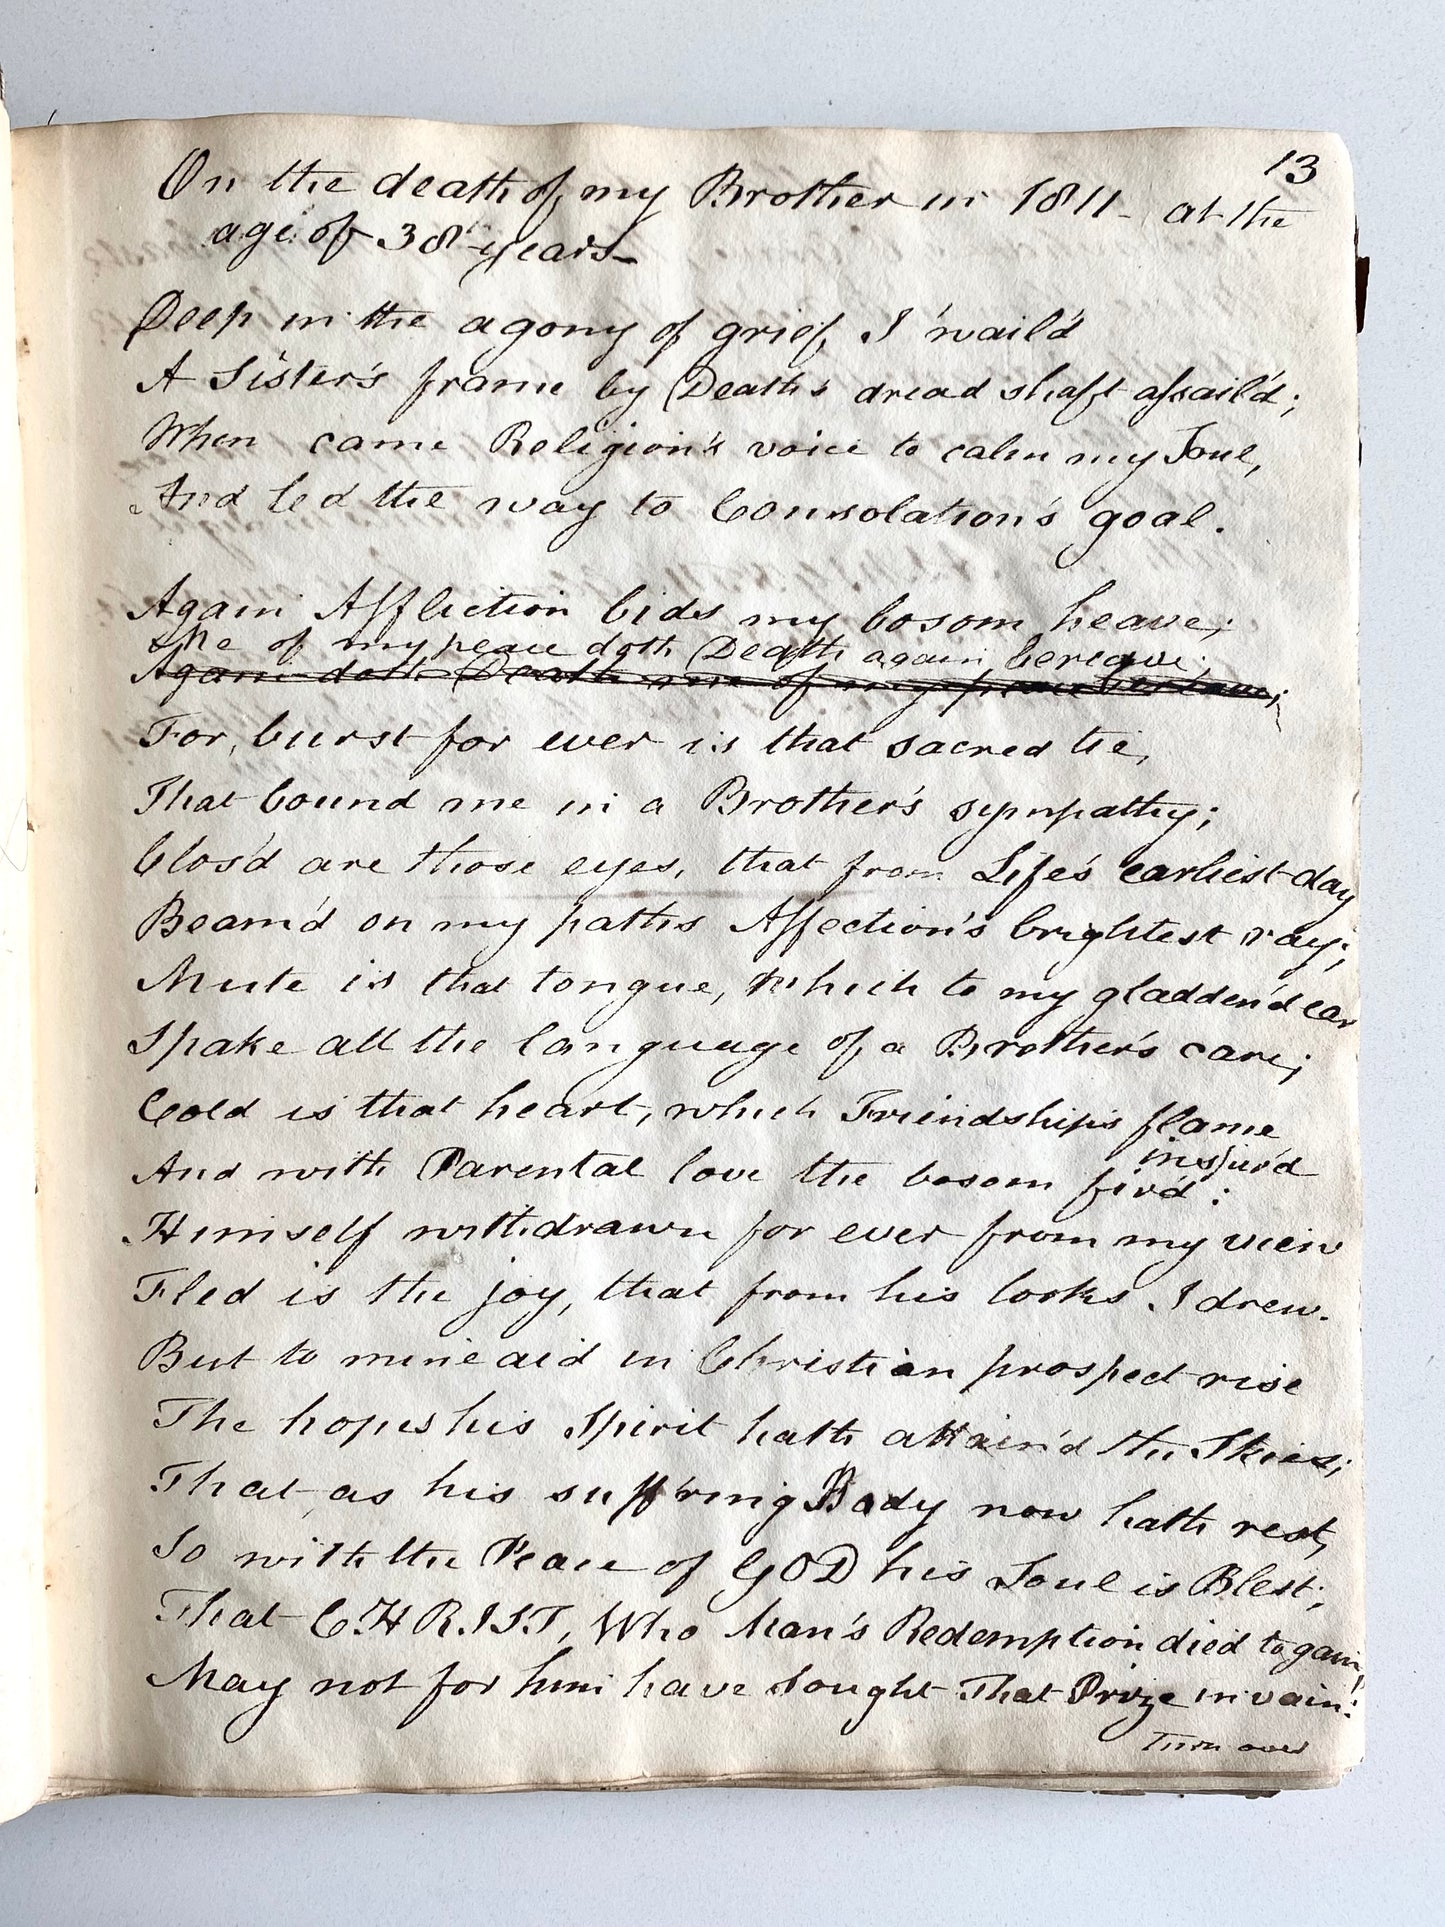 13
On the death of my Brother in 1811 - at the
age of 38 years -
Deep in the agony of grief, I wail'd
A Sister's frame by Death's dread shaft aſsail'd;
When came Religion's voice to calm my Soul,
And led the way to Consolation's goal.
Again Affliction bids my bosom heave;
Me of my peace doth Death again bereave;
Again doth Death me of my peace bereave;
For, burst for ever is that sacred tie,
That bound me in a Brother's sympathy;
Clos'd are those eyes, that from Life's earliest day
Beam'd on my paths Affection's brightest ray;
Mute is that tongue, which to my gladden'd ear
Spake all the language of a Brother's care;
Cold is that heart, which Friendship's flame
inspir'd
And with Parental love the bosom fir'd:
Himself withdrawn for ever from my view
Fled is the joy, that from his looks I drew.
But to mine aid in Christian prospect rise
The hopes his Spirit hath attain'd the Skies;
That as his suff'ring Body now hath rest,
So with the Peace of GOD his Soul is Blest;
That CHRIST, Who Man's Redemption died to gain,
May not for him have sought That Prize in vain:
Turn over